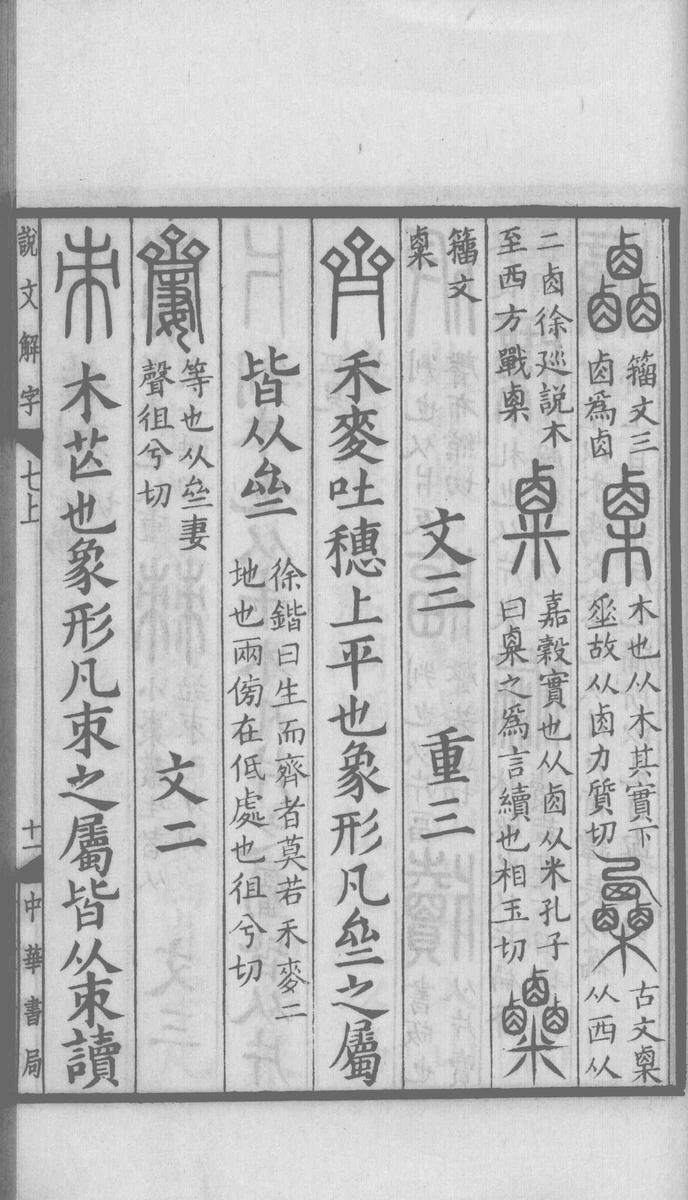 籒文三
卤爲卤
㮚木也从木其實下
𠂹故从卤力質切
古文㮚
从西从
二卤徐廵説木
至西方戰㮚
𥻆嘉穀實也从卤从米孔子
曰㮚之爲言續也相玉切
籒文
㮚
文三　重三
禾麥吐穗上平也象形凡亝之屬
皆从亝徐鍇曰生而齊者莫若禾麥二
地也兩傍在低處也徂兮切
等也从亝妻
聲徂兮切
文二
朿木芒也象形凡朿之屬皆从朿讀
說文解字　七上　十一　中華書局